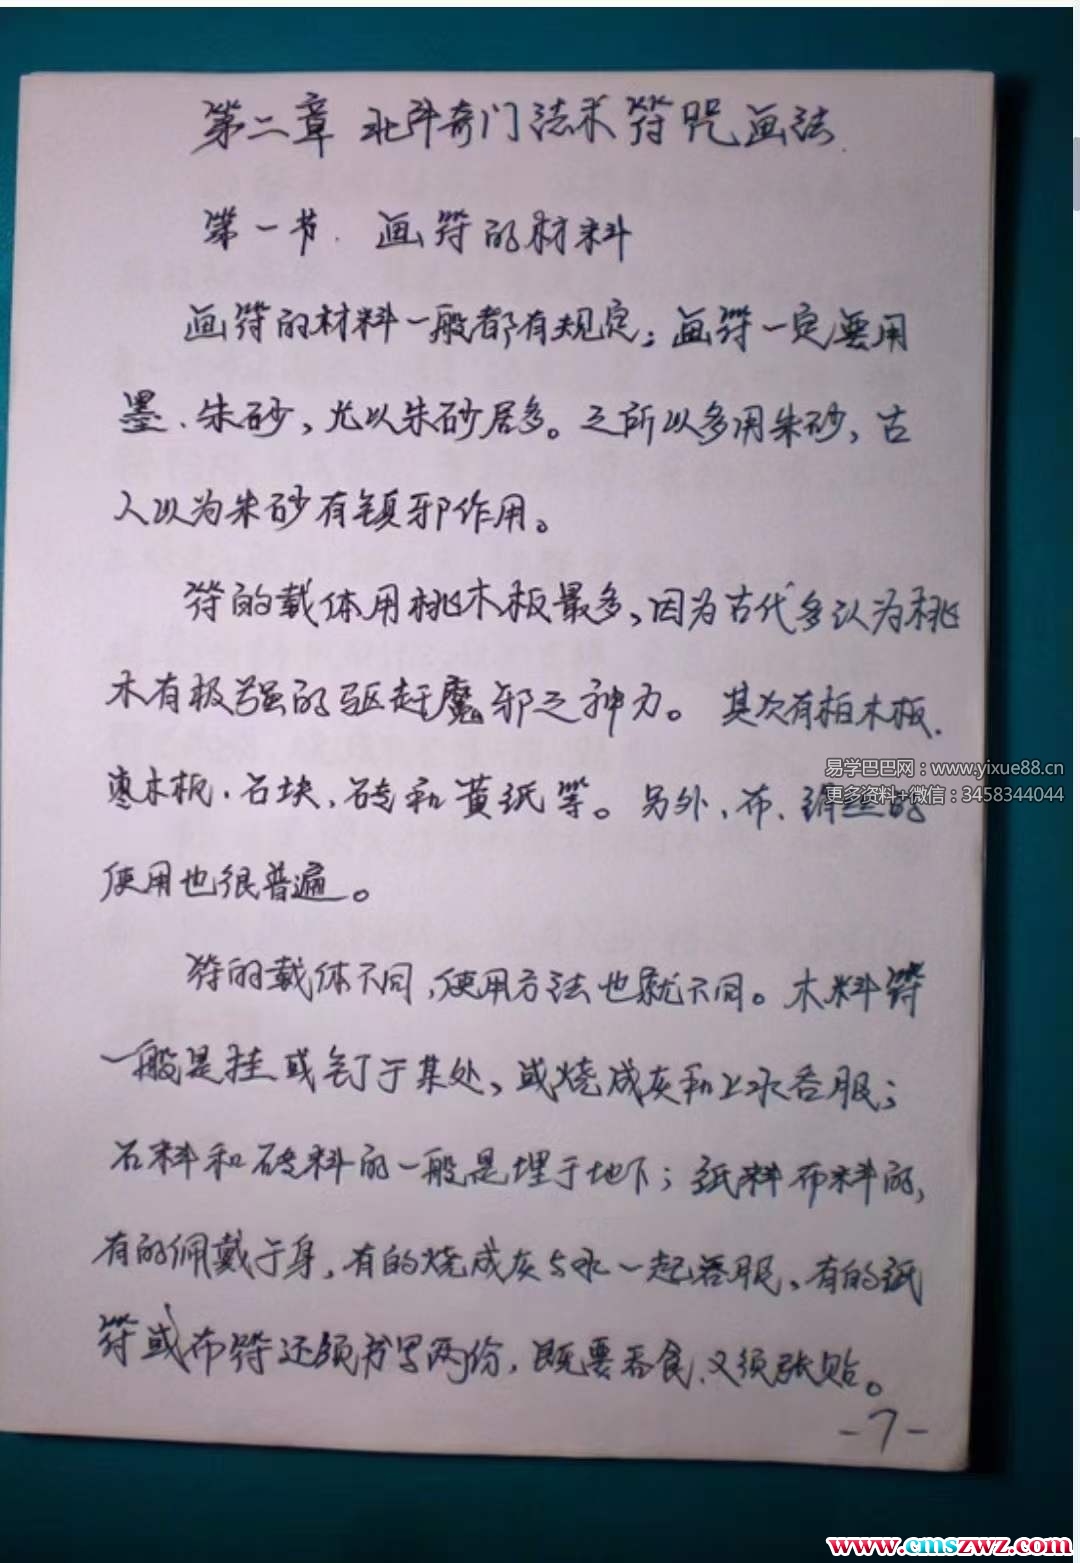 第二章 北斗奇门法术符咒画法
第一节. 画符的材料
画符的材料一般都有规定；画符一定要用
墨、朱砂，尤以朱砂居多。之所以多用朱砂，古
人以为朱砂有镇邪作用。
符的载体用桃木板最多，因为古代多认为桃
木有极强的驱赶魔邪之神力。其次有柏木板、
易学巴巴网：www.yixue88.cn
枣木板、石块、砖和黄纸等。另外、布、绸的
更多资料+微信：3458344044
使用也很普遍。
符的载体不同，使用方法也就不同。木料符
一般是挂或钉于某处、或烧成灰和上水吞服；
石料和砖料的一般是埋于地下；纸料布料的，
有的佩戴于身，有的烧成灰与水一起吞服、有的纸
符或布符还须书写两份，既要吞食、又须张贴。
-7-
www.cmszwz.com